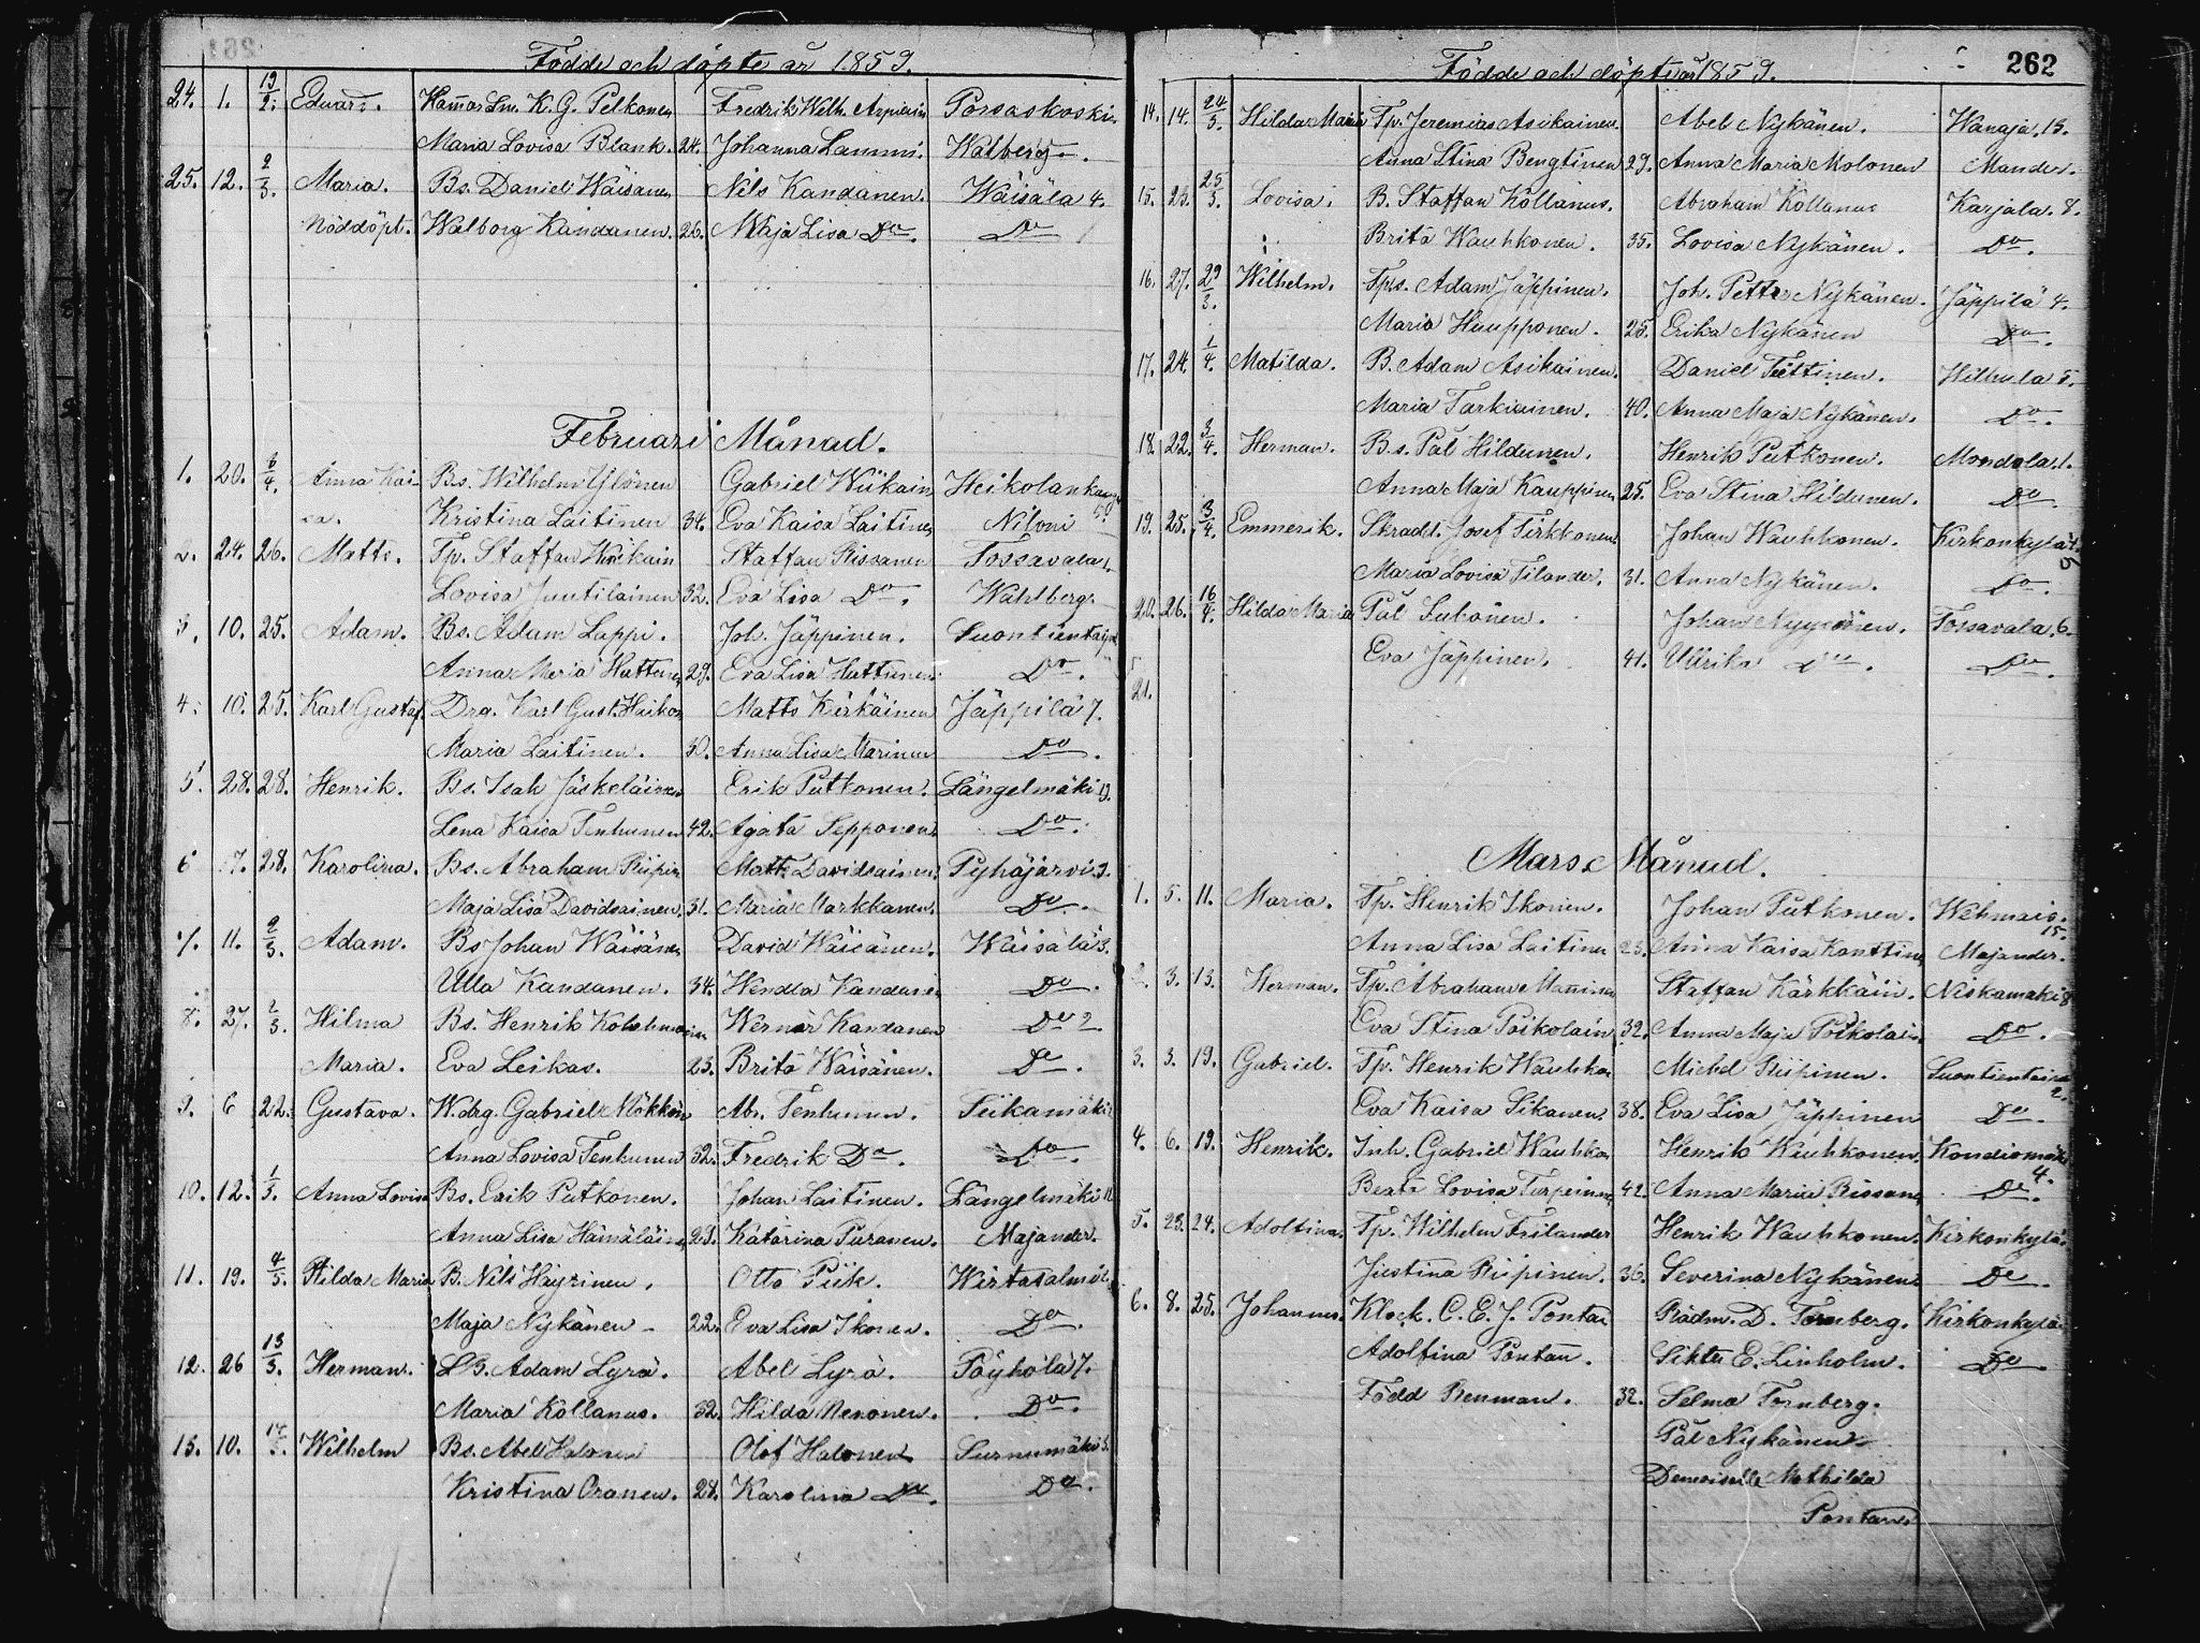 Födde och döpte år 1859.
24. 1. 19/2. Eduard. Hammar Sm. K. G. Pelkonen Fredrik Welh. Porsaskoski.
Maria Lovisa Blank. 24. Johanna Lammi. Walberg.
25. 12. 2/3. Maria. Bs. Daniel Wäisänen Nils Kandanen. Wäisälä 4.
Nöddöpt. Walborg Kandanen. 26. Maja Lisa Do. Do
Februari Månad.
1. 20. 6/4. Anna Kai- Bs. Wilhelm Ylönen Gabriel Wiikain Heikolankangas
sa. Kristina Laitinen 34. Eva Kaisa Laitinen Niloni
2. 24. 26. Matts. Tp. Staffan Wiikain Staffan Rissanen Tossavala 1.
Lovisa Juutilainen 32. Eva Lisa Do. Wahlberg.
3. 10. 25. Adam. Bs. Adam Lappi. Joh. Jäppinen. Suontientaipa
Anna Maria Hattunen 29. Eva Lisa Hattunen. Do.
4. 10. 25. Karl Gustaf. Drg. Karl Gust. Haikon Matts Kärkäinen Jäppilä 7.
Maria Laitinen. 30. Anna Lisa Marinen Do.
5. 28. 28. Henrik. Bs. Isak Jäskeläinen Erik Putkonen. Längelmäki 13.
Lena Kaisa Tenhunen 42. Agata Sepponen. Do.
6 7. 28. Karolina. Bs. Abraham Riipin Matts Davidsainen. Pyhäjärvi 3.
Maja Lisa Davidsainen. 31. Maria Markkanen. Do.
7. 11. 2/3. Adam. Bs Johan Wäisänen David Wäisänen. Wäisälä 3.
Ulla Kandanen. 34. Hendla Kandanen Do.
8. 27. 2/3. Hilma Bs. Henrik Kohlmainen Wernar Kandanen Do 2
Maria. Eva Leikas. 23. Brita Wäisänen. Do.
9. 6 22. Gustava. W.drg. Gabriel Mökkön Abr. Tenhunen. Siikamäki
Anna Lovisa Tenhunen 32. Fredrik Do. Do.
10. 12. 1/3. Anna Lovisa Bs. Erik Putkonen. Johan Laitinen. Längelmäki 11.
Anna Lisa Hämäläinen 29. Katarina Puranen. Majander.
11. 19. 4/3. Hilda Maria B. Nils Häyrinen. Otto Piik. Wirtasalmi
Maja Nykänen 22. Eva Lisa Ikonen. Do.
12. 26 13/3. Herman. LB. Adam Lyra. Abel Lyra. Pöyhölä 7.
Maria Kollanus. 32. Hilda Neronen. Do.
13. 10. Wilhelm Bs. Abel Halonen Olof Halonen Surnumäki 3.
Kristina Oranen. 28. Karolina Do. Do.
262
Födde och döpte år 1859.
14. 14. 24/3. Hilda Maria Tp. Jeremias Asikainen. Abel Nykänen. Wanaja. 15.
Anna Stina Bengtinen 29. Anna Maria Molonen Mander.
15. 23. 25/3. Lovisa. B. Staffan Kollanus. Abraham Kollanus Karjala. 8.
Brita Wauhkonen. 35. Lovisa Nykänen. Do.
16. 27. 29/3. Wilhelm. Tps. Adam Jäppinen. Joh. Petter Nykänen. Jäppilä 4.
Maria Huupponen. 25. Erika Nykänen Do.
17. 24. 1/4. Matilda. B. Adam Asikainen. Daniel Tiittinen. Hilhula 5.
Maria Tarkiainen. 40. Anna Maja Nykänen. Do.
18. 22. 3/4. Herman. B.s. Pål Hildunen. Henrik Putkonen. Mondola. 1.
Anna Maja Kauppinen 25. Eva Stina Hildunen. Do
19. 25. 3/4. Emmerik. Skradd. Josef Tirkkonen. Johan Wauhkonen. Kirkonkylä
Maria Lovisa Tilander. 31. Anna Nykänen. Do.
20. 26. 16/4. Hilda Maria Pål Suhonen. Johan Nyyssönen. Tossavala. 6.
Eva Jäppinen. 41. Ullrika Do. Do.
21.
Mars Månad.
1. 5. 11. Maria. Tp. Henrik Ikonen. Johan Putkonen. Wehmais. 15.
Anna Lisa Laitinen 23. Anna Kaisa Kanttinen Majander.
2. 3. 13. Herman. Tp. Abraham Manninen Staffan Kärkkäin. Niskamäki 8
Eva Stina Poikolain 32. Anna Maja Poikolain Do.
3. 3. 19. Gabriel. Tp. Henrik Wauhkon Michel Riipinen. Suontientaipa 2.
Eva Kaisa Sikanen. 38. Eva Lisa Jäppinen Do.
4. 6. 19. Henrik. Inh. Gabriel Wauhkon Henrik Wauhkonen. Kondiomäki 4.
Beata Lovisa Turpeinen 42. Anna Maria Rissanen Do.
5. 23. 24. Adolfina. Tp. Wilhelm Frilander Henrik Wauhkonen. Kirkonkylä.
Justina Riipinen. 36. Severina Nykänen Do.
6. 8. 25. Johannes. Klock. C. E. J. Pontan Rådm. D. Fornberg. Kirkonkylä
Adolfina Pontan. E. Linholm. Do
Född Renman. 32. Selma Fornberg.
Pål Nykänen
Demoiselle Mathilda
Pontan.